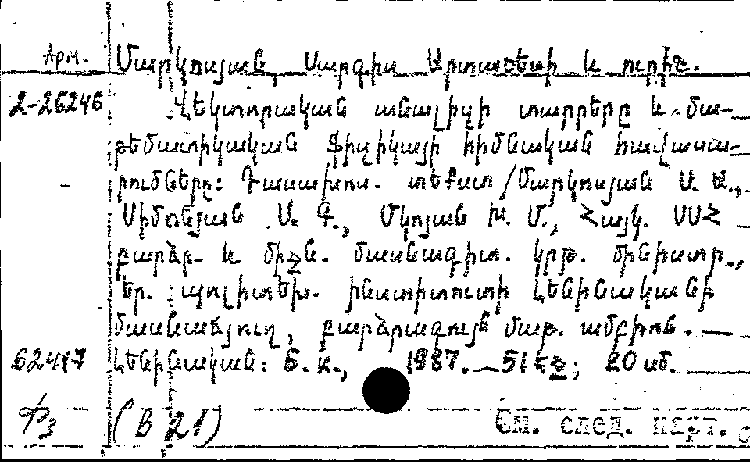 Арм. Մարկոսյան, Սարգիս Արտաշեսի և ուրիշ.
2-26246 Վեկտորական անալիզի տարրերը և մա-
թեմատիկական ֆիզիկայի հիմնական հավասա-
րումները: Դասախոս. տեքստ /Մարկոսյան Ս. Ա.,
Սիմոնյան Ս. Գ., Մկոյան Խ. Մ., Հայկ. ՍՍՀ
բարձր. և միջն. մասնագիտ. կրթ. մինիստր.,
Եր. պոլիտեխ. ինստիտուտի Լենինականի
մասնաճյուղ, բարձրագույն մաթ. ամբիոն. —
62417 Լենինական: Б. и., 1987. — 51 էջ; 20 սմ.
Ф3 (В 21) См. след. карт.